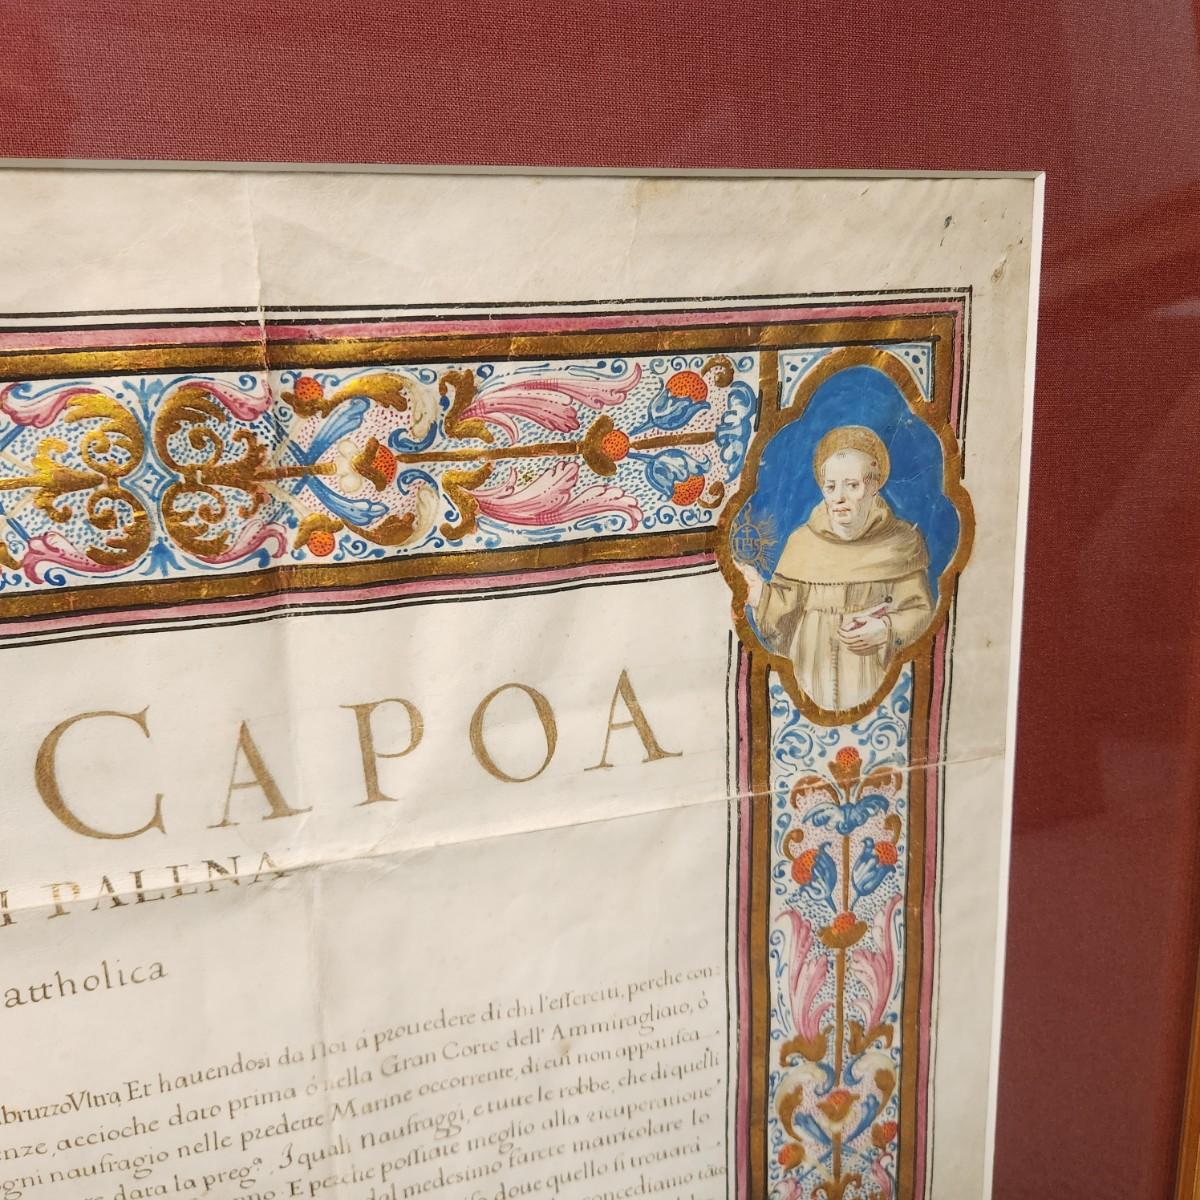 CAPOA
I PALENA
attholica
IHS
bruzzo Vltra, Et hauendosi da Noi á prouedere di chi l'esserciti, perche con:
enze, accioche dato prima ó nella Gran Corte dell' Ammiragliato, ò
ogni naufragio nelle predette Marine occorrente, di cui non apparisca
data la preg.ª, I quali naufraggi, e tutte le robbe, che di quelli
E perche possiate meglio alla ricuperatione
dal medesimo farete matricolare lo
doue quello si trouarà
concediamo